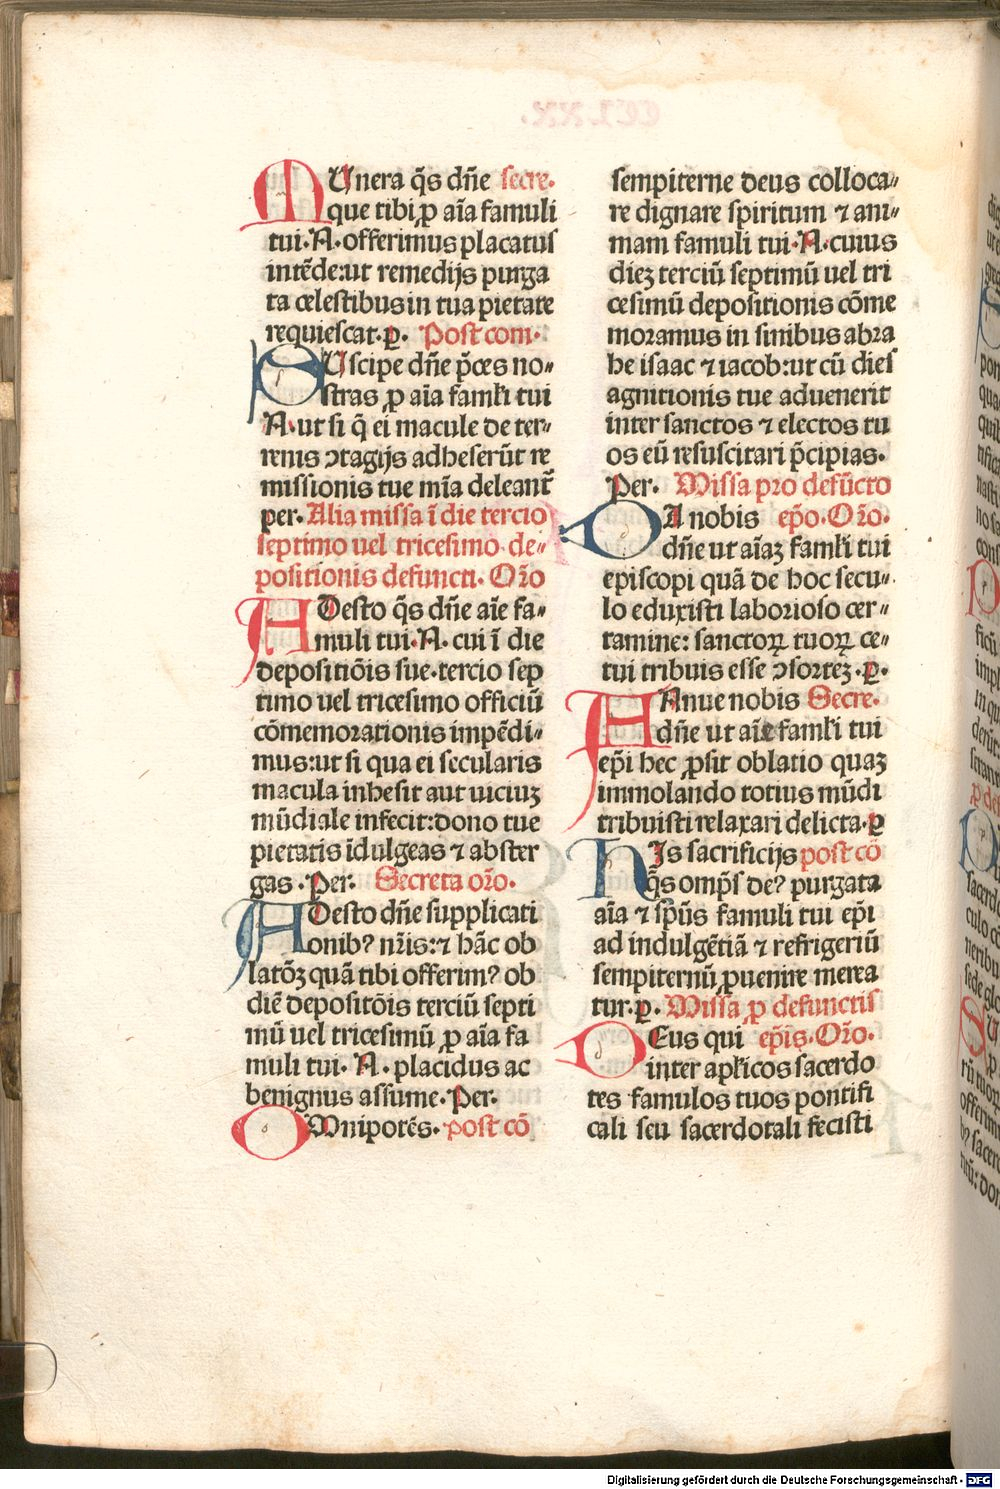 MUnera q̄s dn̄e secre.
que tibi ꝓ aīa famuli
tui·N·offerimus placatus
intēde:ut remedijs purga
ta celestibus in tua pietate
requiescat.ꝑ. Post com·
SUscipe dn̄e p̄ces no⸗
stras ꝓ aīa famłi tui
N·ut si q̄ ei macule de ter⸗
renis ↄtagijs adheserūt re
missionis tue mīa deleant᷑
per. Alia missa ī die tercio
septimo uel tricesimo de⸗
positionis defuncti. Or̄o
ADesto q̄s dn̄e aīe fa⸗
muli tui·N· cui ī die
depositiōis sue.tercio sep
timo uel tricesimo officiū
cōmemorationis impēdi⸗
mus:ut si qua ei secularis
macula inhesit aut uiciuꝫ
mūdiale infecit:dono tue
pietatis īdulgeas ⁊ abster
gas. Per. Secreta or̄o.
ADesto dn̄e supplicati
onibꝰ nr̄is:⁊ hāc ob
latōꝫ quā tibi offerimꝰ ob
diē depositōis terciū septi
mū uel tricesimū ꝓ aīa fa
muli tui. N. placidus ac
benignus assume. Per.
OMnipotēs. post cō
sempiterne deus colloca⸗
re dignare spiritum ⁊ ani⸗
mam famuli tui·N·cuius
dieꝫ terciū septimū uel tri
cesimū depositionis cōme
moramus in sinibus abra
he isaac ⁊ iacob:ut cū dies
agnitionis tue aduenerit
inter sanctos ⁊ electos tu
os eū resuscitari p̄cipias.
Per. Missa pro defūcto
DA nobis ep̄o. Or̄o.
dn̄e ut aīaꝫ famłi tui
episcopi quā de hoc secu⸗
lo eduxisti laborioso cer⸗
tamine: sanctoꝝ tuoꝝ ce⸗
tui tribuis esse ↄsorteꝫ.ꝑ.
ANnue nobis Secre.
dn̄e ut aīe famłi tui
ep̄i hec ꝓsit oblatio quaꝫ
immolando totius mūdi
tribuisti relaxari delicta.ꝑ
HIs sacrificijs post cō
q̄s omp̄s deꝰ purgata
aīa ⁊ sp̄ūs famuli tui ep̄i
ad indulgētiā ⁊ refrigeriū
sempiternū ꝓuenire merea
tur.ꝑ. Missa ꝓ defunctis
DEus qui ep̄is. Or̄o.
inter apłicos sacerdo
tes famulos tuos pontifi
cali seu sacerdotali fecisti
Digitalisierung gefördert durch die Deutsche Forschungsgemeinschaft - DFG